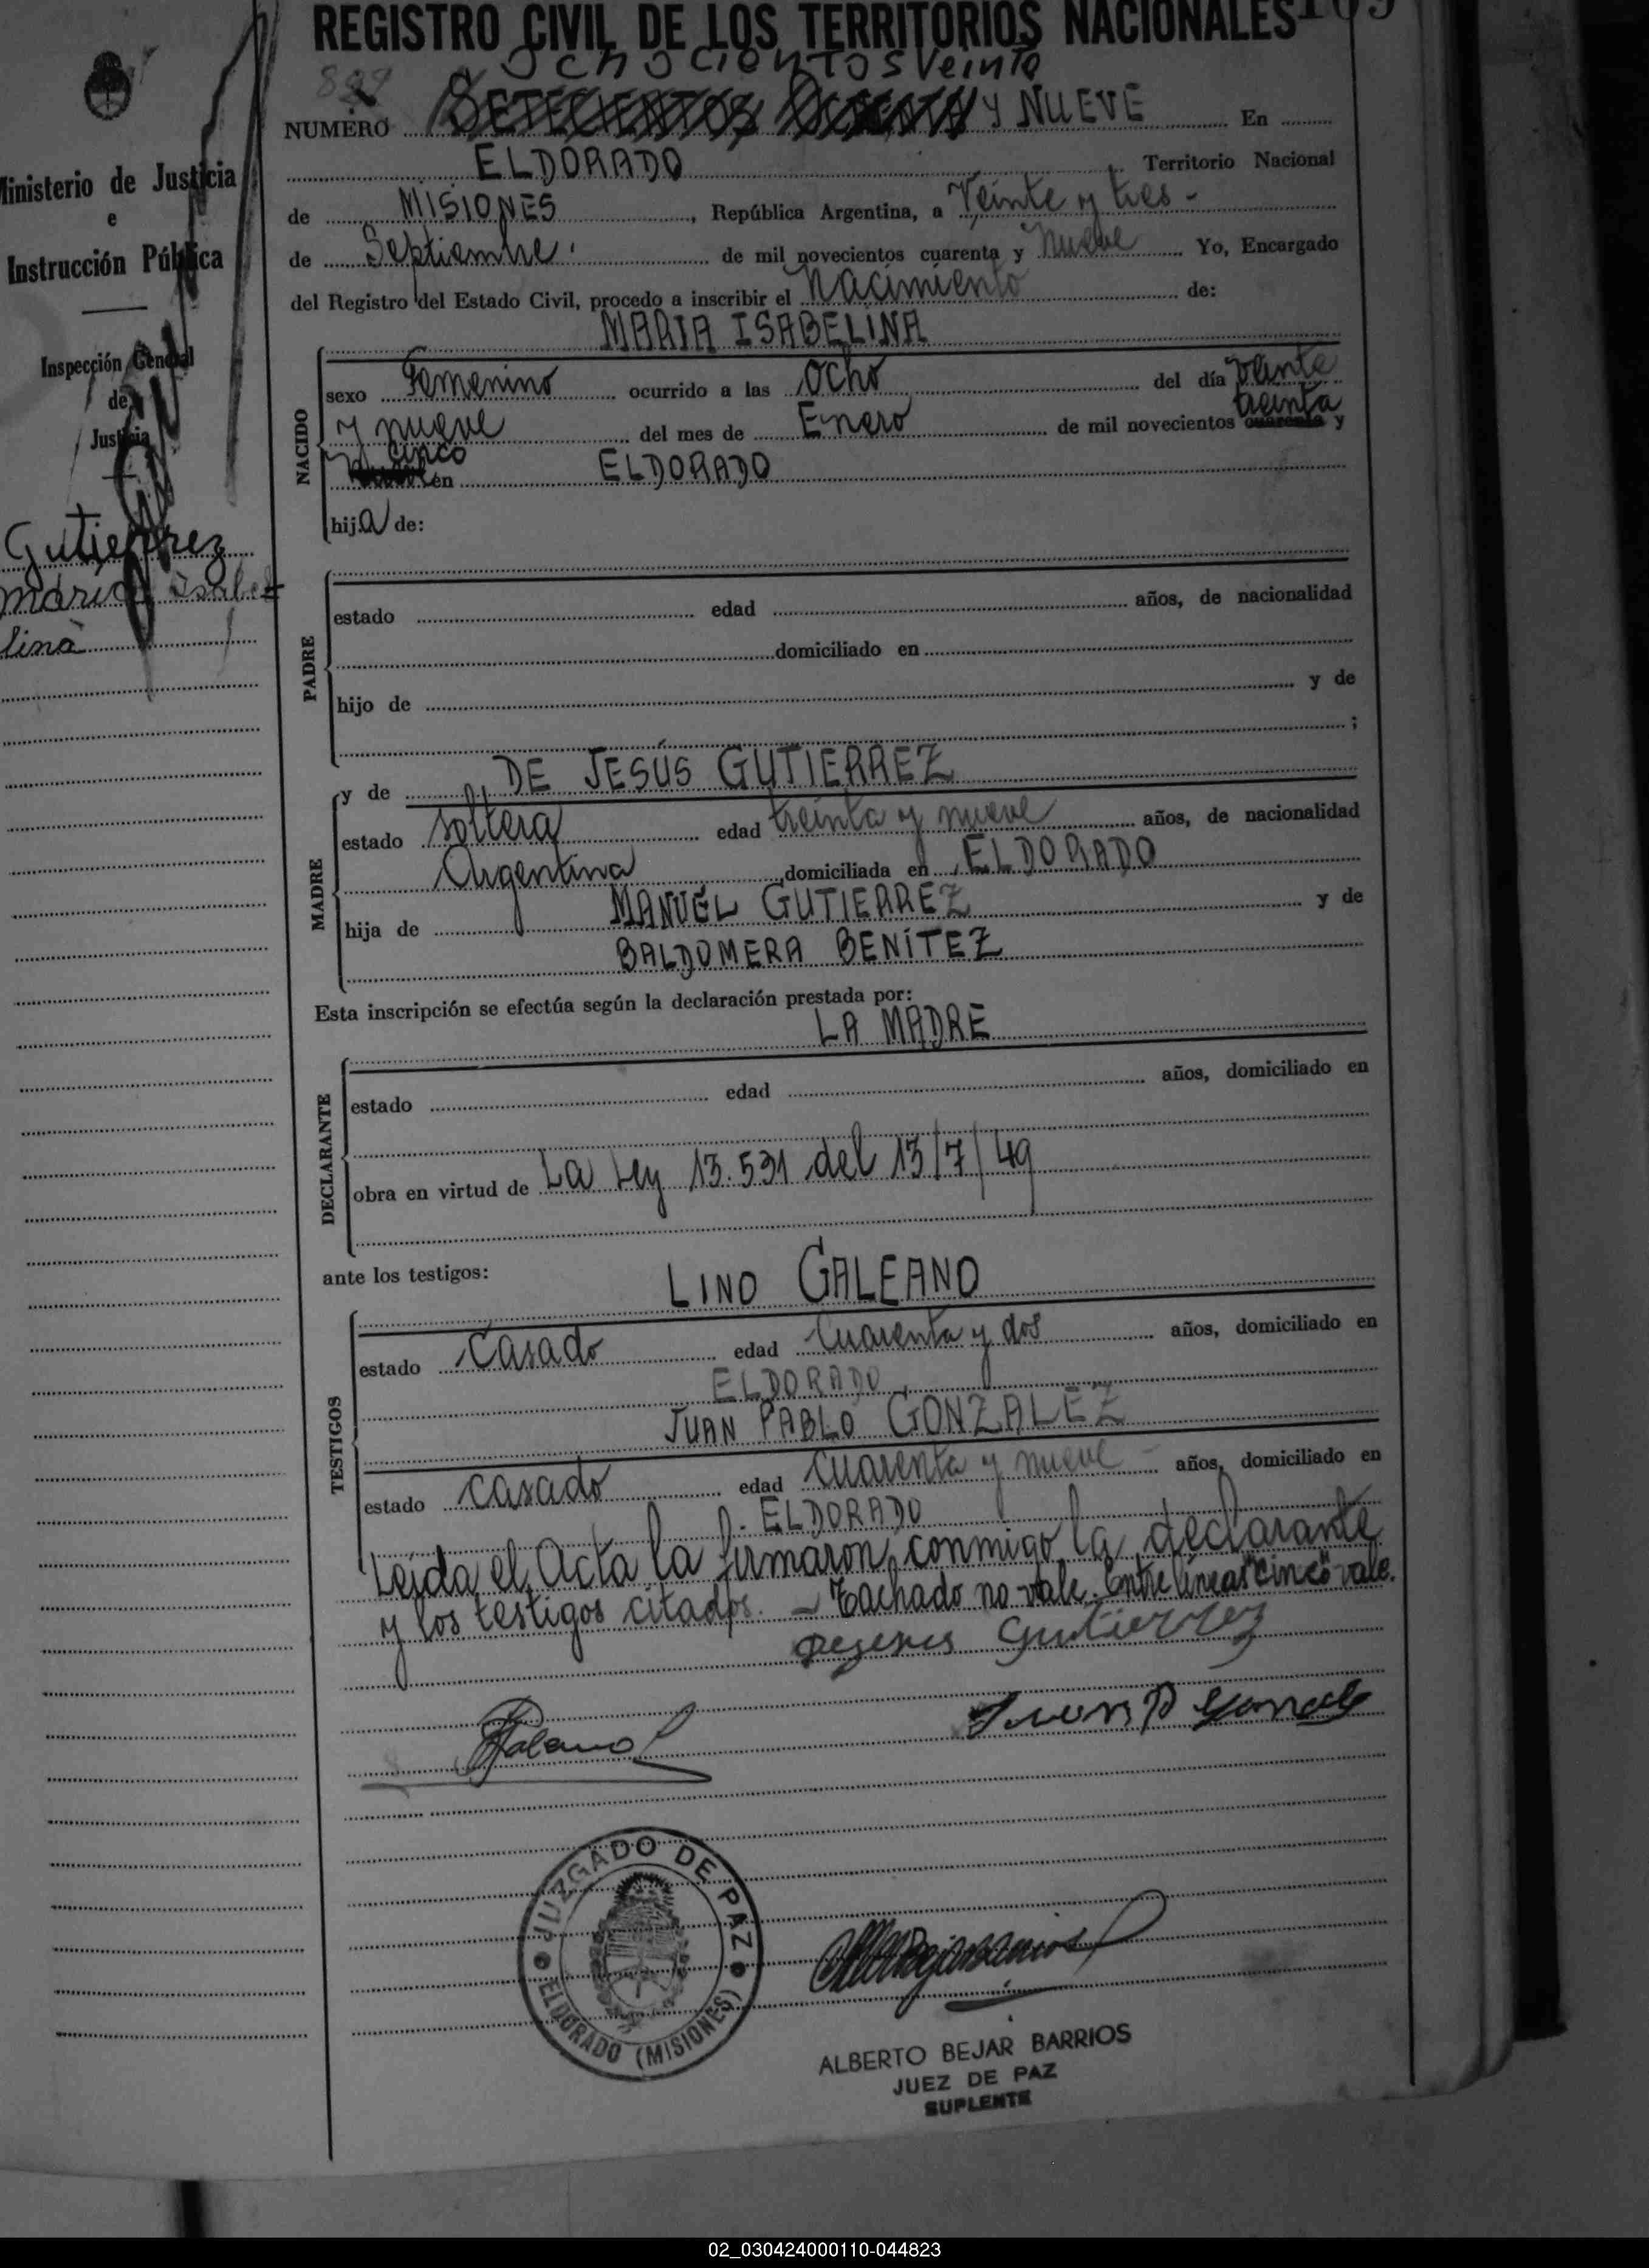 REGISTRO CIVIL DE LOS TERRITORIOS NACIONALES
Ochocientos Veinte
829
NUMERO SETECIENTOS y NUEVE En
ELDORADO Territorio Nacional
de MISIONES, República Argentina, a Veinte y tres -
de Septiembre. de mil novecientos cuarenta y Nueve Yo, Encargado
del Registro del Estado Civil, procedo a inscribir el Nacimiento de:
MARIA ISABELINA
NACIDO
sexo Femenino ocurrido a las Ocho del día Veinte
treinta
y nueve del mes de Enero de mil novecientos cuarenta y
y cinco
en ELDORADO
hija de:
PADRE
estado edad años, de nacionalidad
domiciliado en
hijo de y de
;
MADRE
y de DE JESÚS GUTIERREZ
estado soltera edad treinta y nueve años, de nacionalidad
Argentina domiciliada en ELDORADO
hija de MANUEL GUTIERREZ y de
BALDOMERA BENÍTEZ
Esta inscripción se efectúa según la declaración prestada por:
LA MADRE
DECLARANTE
estado edad años, domiciliado en
obra en virtud de La Ley 13.531 del 13/7/49
ante los testigos:
LINO GALEANO
TESTIGOS
estado Casado edad Cuarenta y dos años, domiciliado en
ELDORADO
JUAN PABLO GONZALEZ
estado casado edad Cuarenta y nueve - años, domiciliado en
ELDORADO
Leída el Acta la firmaron conmigo la declarante
y los testigos citados. - Tachado no vale. Entre líneas "cinco" vale.
Gutierrez
Galeano
Juan P
JUZGADO DE PAZ
ELDORADO (MISIONES)
ALBERTO BEJAR BARRIOS
JUEZ DE PAZ
SUPLENTE
Ministerio de Justicia
e
Instrucción Pública
Inspección General
de
Justicia
Gutierrez
Maria Isabe
lina
02_030424000110-044823